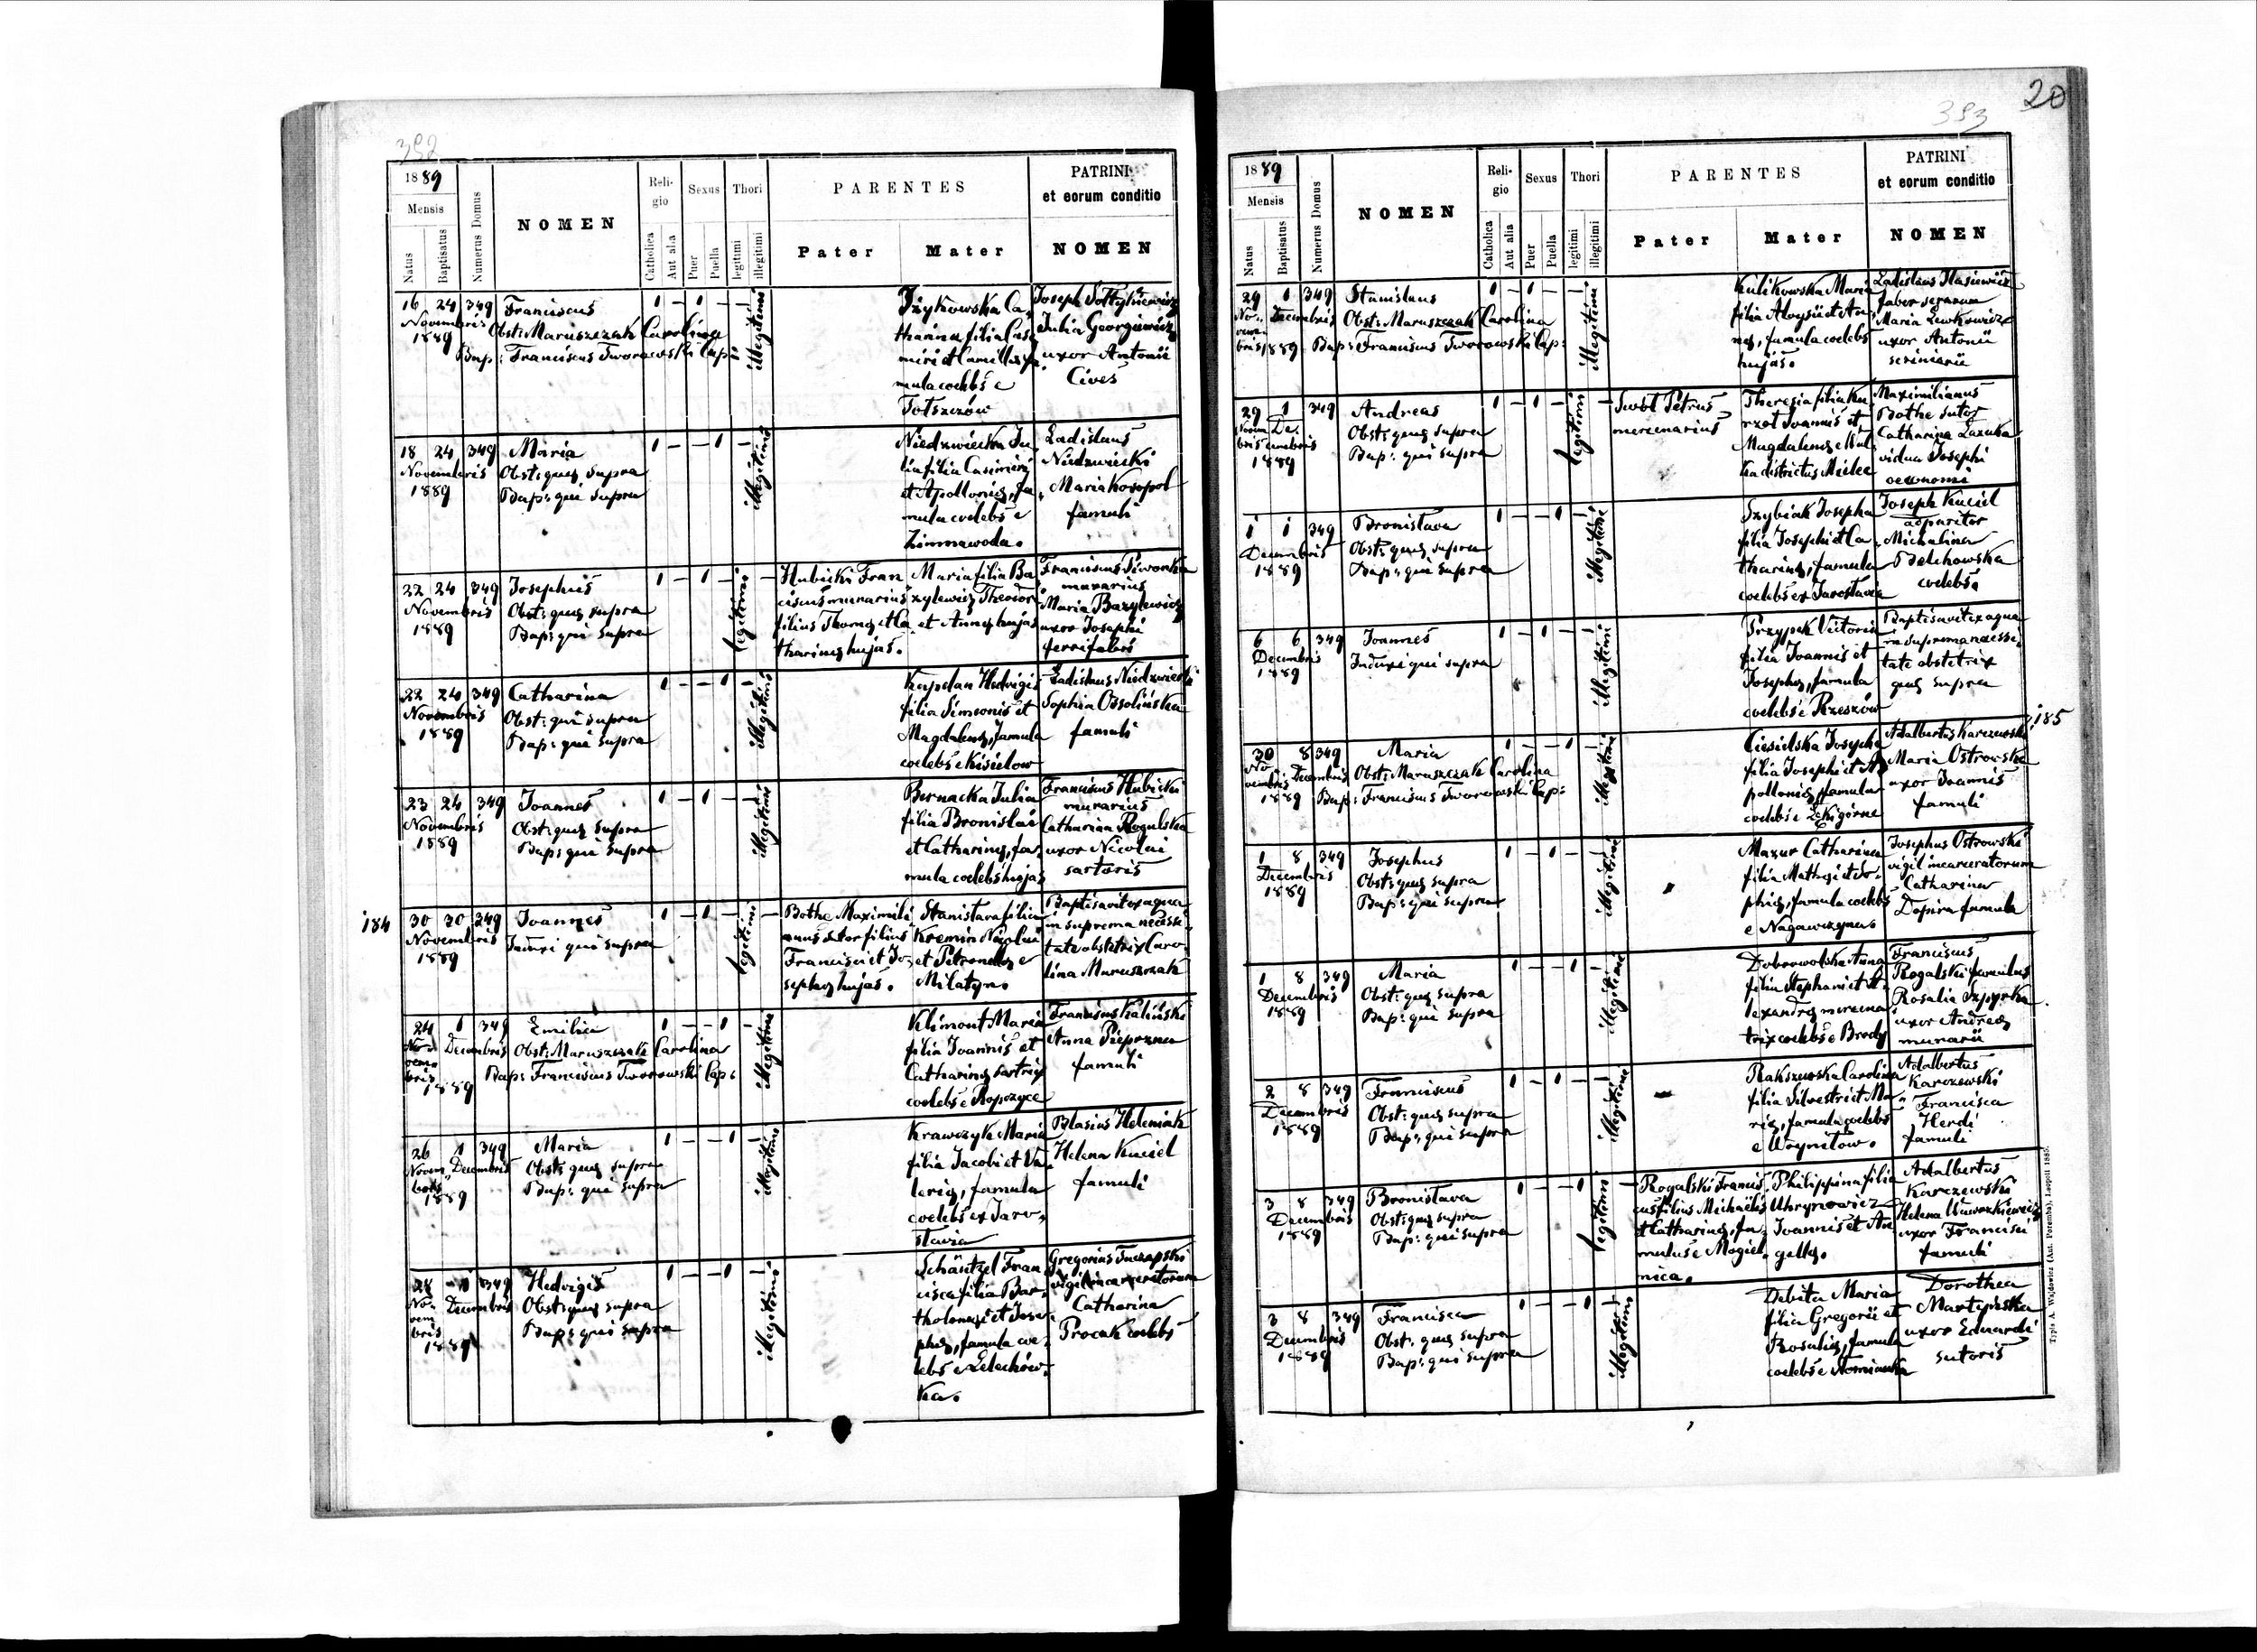 392
1889
Mensis
Natus
Baptisatus
Numerus Domus
NOMEN
Reli-
gio
Catholica
Aut alia
Sexus
Puer
Puella
Thori
legitimi
illegitimi
PARENTES
Pater
Mater
PATRINI
et eorum conditio
NOMEN
16 24 349 Franciscus 1 – 1 – – illegitimi
Novembris
1889
Obst: Maruszczak Carolina
Bap: Franciscus Tworowski Cap:
Iżykowska Ca,
tharina filia Casi
miri et Camillae fa,
mula coelebs e
Totszczów
Joseph Sołtykiewicz
Julia Georgiewicz
uxor Antonii
Cives
18 24 349 Maria 1 – – 1 – illegitimi
Novembris
1889
Obst: quae supra
Bap: qui supra
Niedzwiecka Ju
lia filia Casimiri
et Apolloniae, fa,
mula coelebs e
Zimnawoda.
Ladislaus
Niedzwiecki
Maria Kosopol
famuli
22 24 349 Josephus 1 – 1 – legitimi –
Novembris
1889
Obst: quae supra
Bap: qui supra
Hubicki Fran
ciscus murarius
filius Thomae et Ca
tharinae hujas.
Maria filia Ba
zylewicz Theodori
et Annae hujas
Franciscus Piwonka
murarius
Maria Bazylewicz
uxor Josephi
ferrifabri
22 24 349 Catharina 1 – – 1 – illegitimi
Novembris
1889
Obst: quae supra
Bap: qui supra
Kapdan Hedvigis
filia Simeonis et
Magdalenae, famula
coelebs e Kisielow
Ladislaus Niedzwiecki
Sophia Ossolińska
famuli
23 24 349 Joannes 1 – 1 – – illegitimi
Novembris
1889
Obst: quae supra
Bap: qui supra
Bernacka Julia
filia Bronislai
et Catharinae, fa,
mula coelebs hujas
Franciscus Hubicki
murarius
Catharina Rogulska
uxor Nicolai
sartoris
184
30 30 349 Joannes 1 – 1 – legitimi –
Novembris
1889
Induxi qui supra
Bothe Maximili
anus sutor filius
Francisci et Jo,
sephae hujas.
Stanislava filia
Kremin Nicolai
et Petronellae e
Milatyn.
Baptisavit ex aqua
in suprema necessi,
tate obstetrix Caro,
lina Maruszczak
24 1 349 Emilia 1 – – 1 – illegitimi
No
vem
bris
Decembris
1889
Obst: Maruszczak Carolina
Bap: Franciscus Tworowski Cap:
Klimont Maria
filia Joannis et
Catharinae sartrix
coelebs e Ropczyce
Franciscus Kaliński
Anna Pieprzna
famuli
26 1 349 Maria 1 – – 1 – illegitimi
Novem Decembris
bris
1889
Obst: quae supra
Bap: qui supra
Krawczyk Maria
filia Jacobi et Va,
leriae, famula
coelebs ex Jaro,
slavia
Blasius Heleniak
Helena Kuciel
famuli
28 1 349 Hedvigis 1 – – 1 – illegitimi
No,
vem
bris
Decembris
1889
Obst: quae supra
Bap: qui supra
Schäntzel Fran
cisca filia Bar,
tholomaei et Jose,
phae, famula coe,
lebs e Zelechów,
ka.
Gregorius Tuczapski
vigil incarceratorum
Catharina
Procak coelebs
20
393
1889
Mensis
Natus
Baptisatus
Numerus Domus
NOMEN
Reli-
gio
Catholica
Aut alia
Sexus
Puer
Puella
Thori
legitimi
illegitimi
PARENTES
Pater
Mater
PATRINI
et eorum conditio
NOMEN
29 1 349 Stanislaus 1 – 1 – – illegitimi
No,
vem
bris
Decembris
1889
Obst: Maruszczak Carolina
Bap: Franciscus Tworowski Cap:
Kulikowska Maria
filia Aloysii et An,
nae, famula coelebs
hujas.
Ladislaus Hasiewicz
faber serarum
Maria Lewkowicz
uxor Antonii
scriniarii
29 1 349 Andreas 1 – 1 – legitimi –
Novem De,
bris cembris
1889
Obst: quae supra
Bap: qui supra
Petrus
mercenarius
Theresia filia Ku
rzot Joannis et
Magdalenae e
districtus Mielec
Maximilianus
Bothe sutor
Catharina Łazuka
vidua Josephi
oeconomi
1 1 349 Bronislava 1 – – 1 – illegitimi
Decembris
1889
Obst: quae supra
Bap: qui supra
Szybiak Josepha
filia Josephi et Ca,
tharinae, famula
coelebs ex Jaroslavia
Joseph Kuciel
apparitor
Michalina
Belchowska
coelebs.
6 6 349 Joannes 1 – 1 – – illegitimi
Decembris
1889
Induxi qui supra
Przypek Victoria
filia Joannis et
Josephae, famula
coelebs e Rzeszów
Baptisavit ex aqua
in suprema necessi,
tate obstetrix
quae supra
185
30 8 349 Maria 1 – – 1 – illegitimi
No,
vembris Decembris
1889
Obst: Maruszczak Carolina
Bap: Franciscus Tworowski Cap:
Ciesielska Josepha
filia Josephi et A,
polloniae, famula
coelebs e Łękigórne
Adalbertus Karczewski
Maria Ostrowska
uxor Joannis
famuli
1 8 349 Josephus 1 – 1 – – illegitimi
Decembris
1889
Obst: quae supra
Bap: qui supra
Mazur Catharina
filia Mathaei et So,
phiae, famula coelebs
e Nagawczyna.
Josephus Ostrowski
vigil incarceratorum
Catharina
Dopira famula
1 8 349 Maria 1 – – 1 – illegitimi
Decembris
1889
Obst: quae supra
Bap: qui supra
Dobrowolska Anna
filia Stephani et A,
lexandrae mercena
trix coelebs e Brody
Franciscus
Rogalski famulus
Rosalia Szpyrka
uxor Andreae
murarii
2 8 349 Franciscus 1 – 1 – – illegitimi
Decembris
1889
Obst: quae supra
Bap: qui supra
Rakszewska Carolina
filia Silvestri et Ma,
riae, famula coelebs
e Woynilow.
Adalbertus
Karczewski
Francisca
Herdi
famuli
3 8 349 Bronislava 1 – – 1 legitimi –
Decembris
1889
Obst: quae supra
Bap: qui supra
Rogalski Francis,
cus filius Michaëlis
et Catharinae, fa,
mulus e Mogiel,
nica.
Philippina filia
Uhrynowicz
Joannis et An
gelae.
Adalbertus
Karczewski
Helena
uxor Francisci
famuli
3 8 349 Francisca 1 – – 1 – illegitimi
Decembris
1889
Obst: quae supra
Bap: qui supra
Debita Maria
filia Gregorii et
Rosaliae, famula
coelebs e
Dorothea
Martyńska
uxor Eduardi
sutoris
Typis A. Wajdowicz (Ant. Poremba), Leopoli 1885.